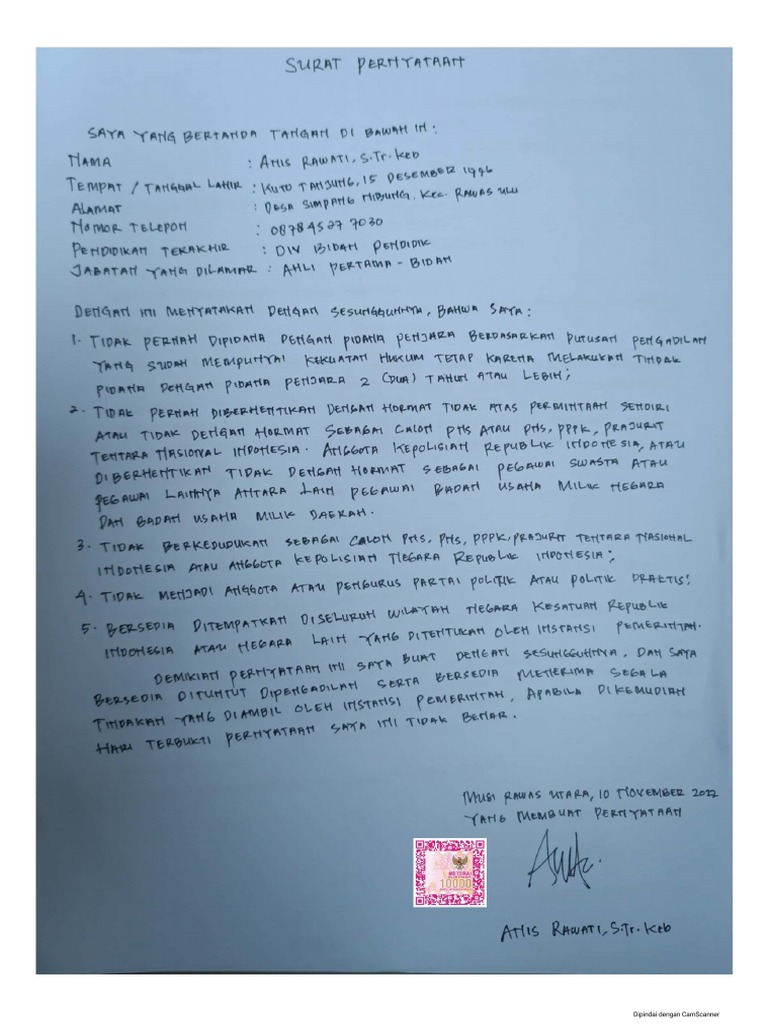 SURAT PERNYATAAN
SAYA YANG BERTANDA TANGAN DI BAWAH INI :
NAMA : ANIS RAWATI, S.Tr.Keb
TEMPAT / TANGGAL LAHIR : KUTO TANJUNG, 15 DESEMBER 1996
ALAMAT : DESA SIMPANG NIBUNG. KEC. RAWAS ULU
NOMOR TELEPON : 087845277030
PENDIDIKAN TERAKHIR : DIV BIDAN PENDIDIK
JABATAN YANG DILAMAR : AHLI PERTAMA - BIDAN
DENGAN INI MENYATAKAN DENGAN SESUNGGUHNYA, BAHWA SAYA :
1. TIDAK PERNAH DIPIDANA DENGAN PIDANA PENJARA BERDASARKAN PUTUSAN PENGADILAN
YANG SUDAH MEMPUNYAI KEKUATAN HUKUM TETAP KARENA MELAKUKAN TINDAK
PIDANA DENGAN PIDANA PENJARA 2 (DUA) TAHUN ATAU LEBIH;
2. TIDAK PERNAH DIBERHENTIKAN DENGAN HORMAT TIDAK ATAS PERMINTAAN SENDIRI
ATAU TIDAK DENGAN HORMAT SEBAGAI CALON PNS ATAU PNS, PPPK, PRAJURIT
TENTARA NASIONAL INDONESIA. ANGGOTA KEPOLISIAN REPUBLIK INDONESIA, ATAU
DIBERHENTIKAN TIDAK DENGAN HORMAT SEBAGAI PEGAWAI SWASTA ATAU
PEGAWAI LAINNYA ANTARA LAIN PEGAWAI BADAN USAHA MILIK NEGARA
DAN BADAN USAHA MILIK DAERAH.
3. TIDAK BERKEDUDUKAN SEBAGAI CALON PNS, PNS, PPPK, PRAJURIT TENTARA NASIONAL
INDONESIA ATAU ANGGOTA KEPOLISIAN NEGARA REPUBLIK INDONESIA;
4. TIDAK MENJADI ANGGOTA ATAU PENGURUS PARTAI POLITIK ATAU POLITIK PRAKTIS;
5. BERSEDIA DITEMPATKAN DISELURUH WILAYAH NEGARA KESATUAN REPUBLIK
INDONESIA ATAU NEGARA LAIN YANG DITENTUKAN OLEH INSTANSI PEMERINTAH.
DEMIKIAN PERNYATAAN INI SAYA BUAT DENGAN SESUNGGUHNYA, DAN SAYA
BERSEDIA DITUNTUT DIPENGADILAN SERTA BERSEDIA MENERIMA SEGALA
TINDAKAN YANG DIAMBIL OLEH INSTANSI PEMERINTAH, APABILA DIKEMUDIAN
HARI TERBUKTI PERNYATAAN SAYA INI TIDAK BENAR.
MUSI RAWAS UTARA, 10 NOVEMBER 2022
YANG MEMBUAT PERNYATAAN
METERAI
10000
ANIS RAWATI, S.Tr.Keb
Dipindai dengan CamScanner